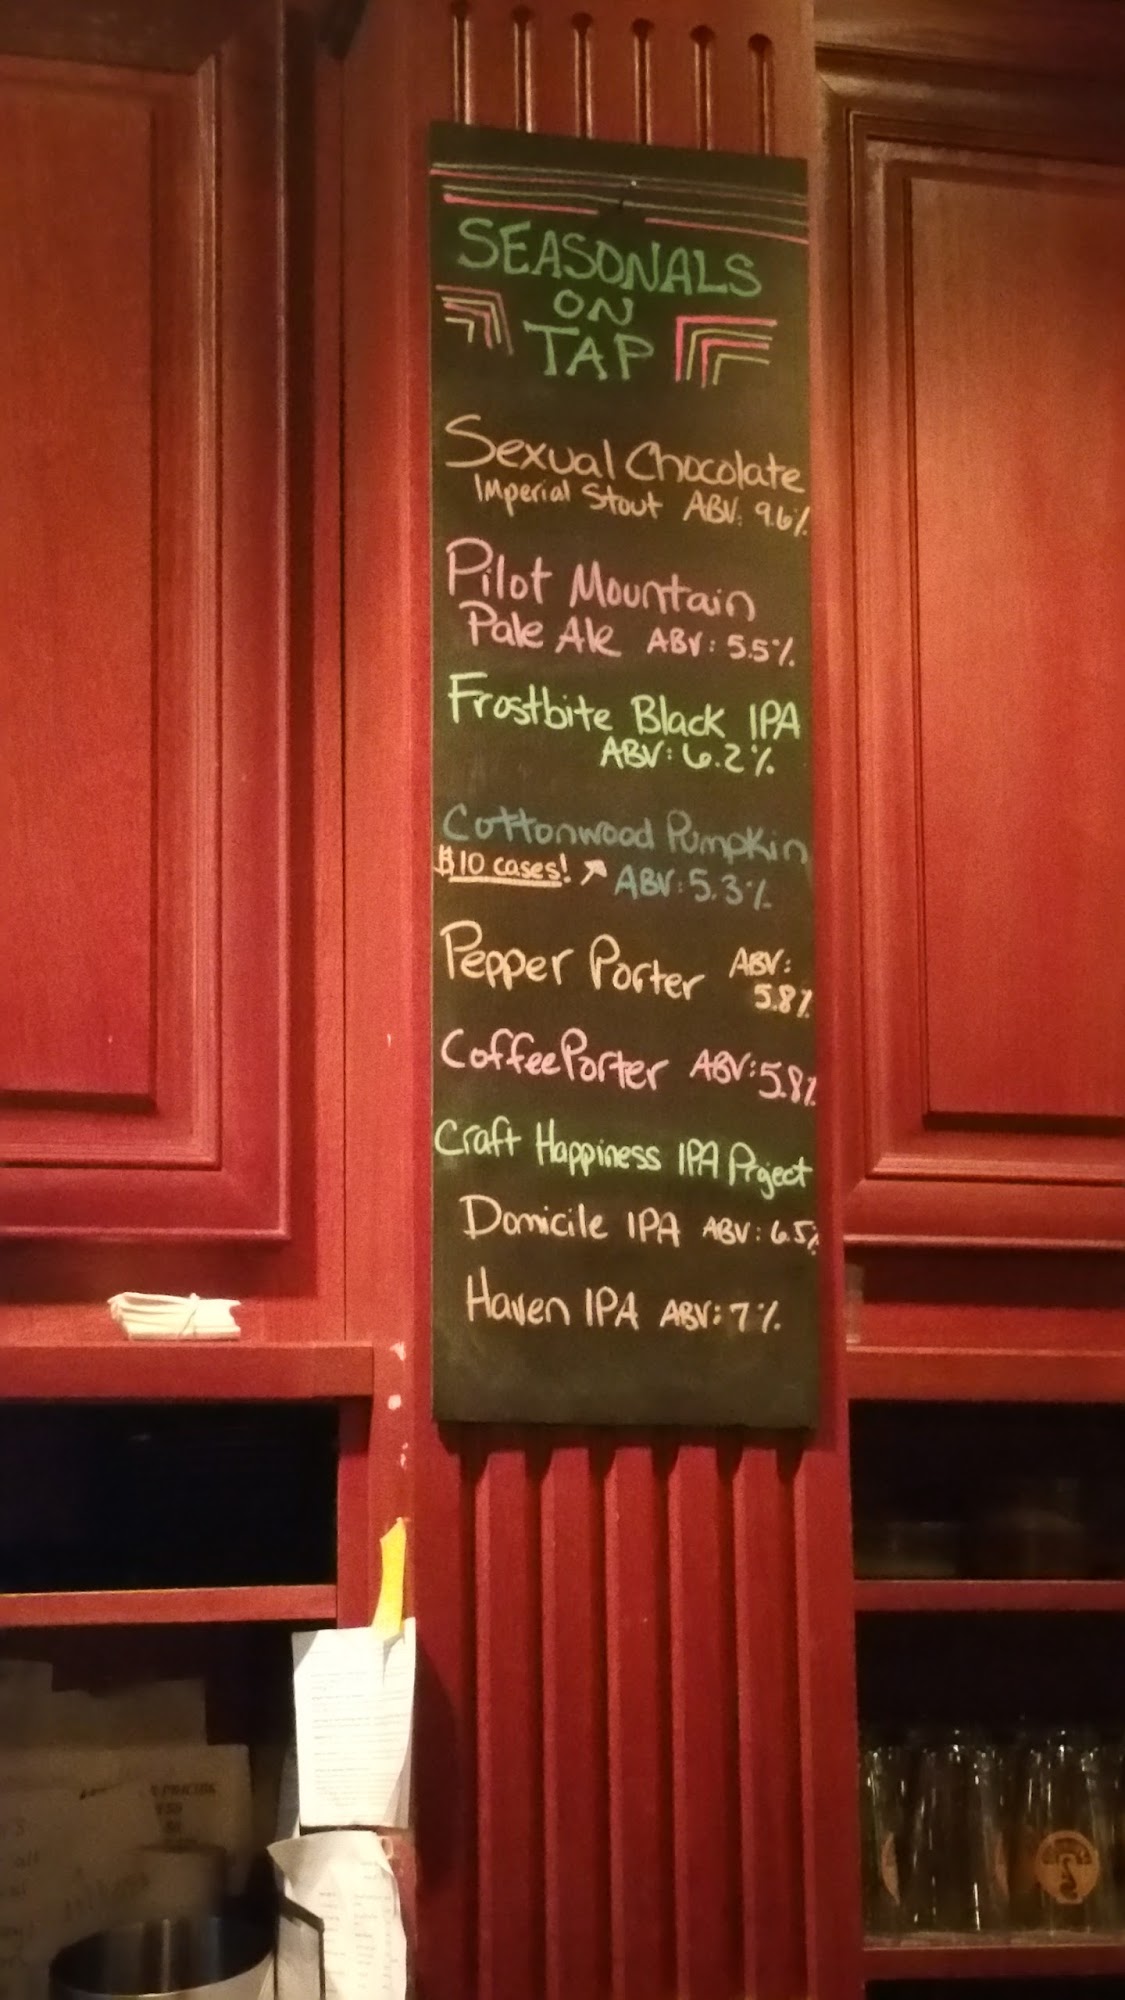 SEASONALS
ON
TAP
Sexual Chocolate
Imperial Stout ABV: 9.6%
Pilot Mountain
Pale Ale ABV: 5.5%
Frostbite Black IPA
ABV: 6.2%
Cottonwood Pumpkin
$10 cases! ↗ ABV: 5.3%
Pepper Porter ABV:
5.8%
Coffee Porter ABV: 5.8%
Craft Happiness IPA Project
Domicile IPA ABV: 6.5%
Haven IPA ABV: 7%
PRICING